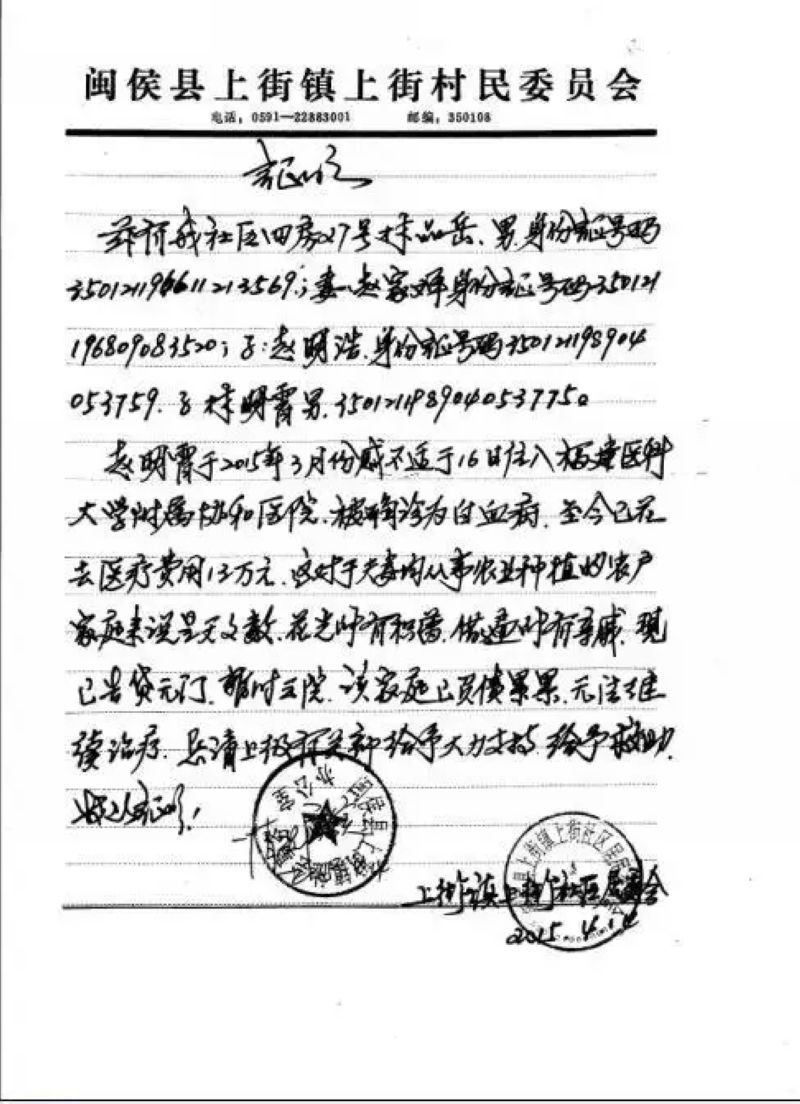 闽侯县上街镇上街村民委员会
电话：0591—22883001 邮编：350108
证明
兹有我社区四房27号林品岳、男、身份证号码
350121196611213569；妻：赵家 身份证号码350121
196809083520；子：赵明浩、身份证号码350121198904
053759、子林明霄男、350121198904053775。
赵明霄于2015年3月份感不适于16日住入福建医科
大学附属协和医院、被确诊为白血病、至今已花
去医疗费用13万元、这对于夫妻均从事农业种植的农户
家庭来说是天文数、花光所有积蓄、借遍所有亲戚、现
已告贷无门、暂时出院、该家庭已负债累累、无法继
续治疗、恳请上级有关部 给予大力支持、给予救助、
特此证明！
上街镇上街社区居委会
2015.4.14
办公室
闽侯县上街镇上街社区居民委员会